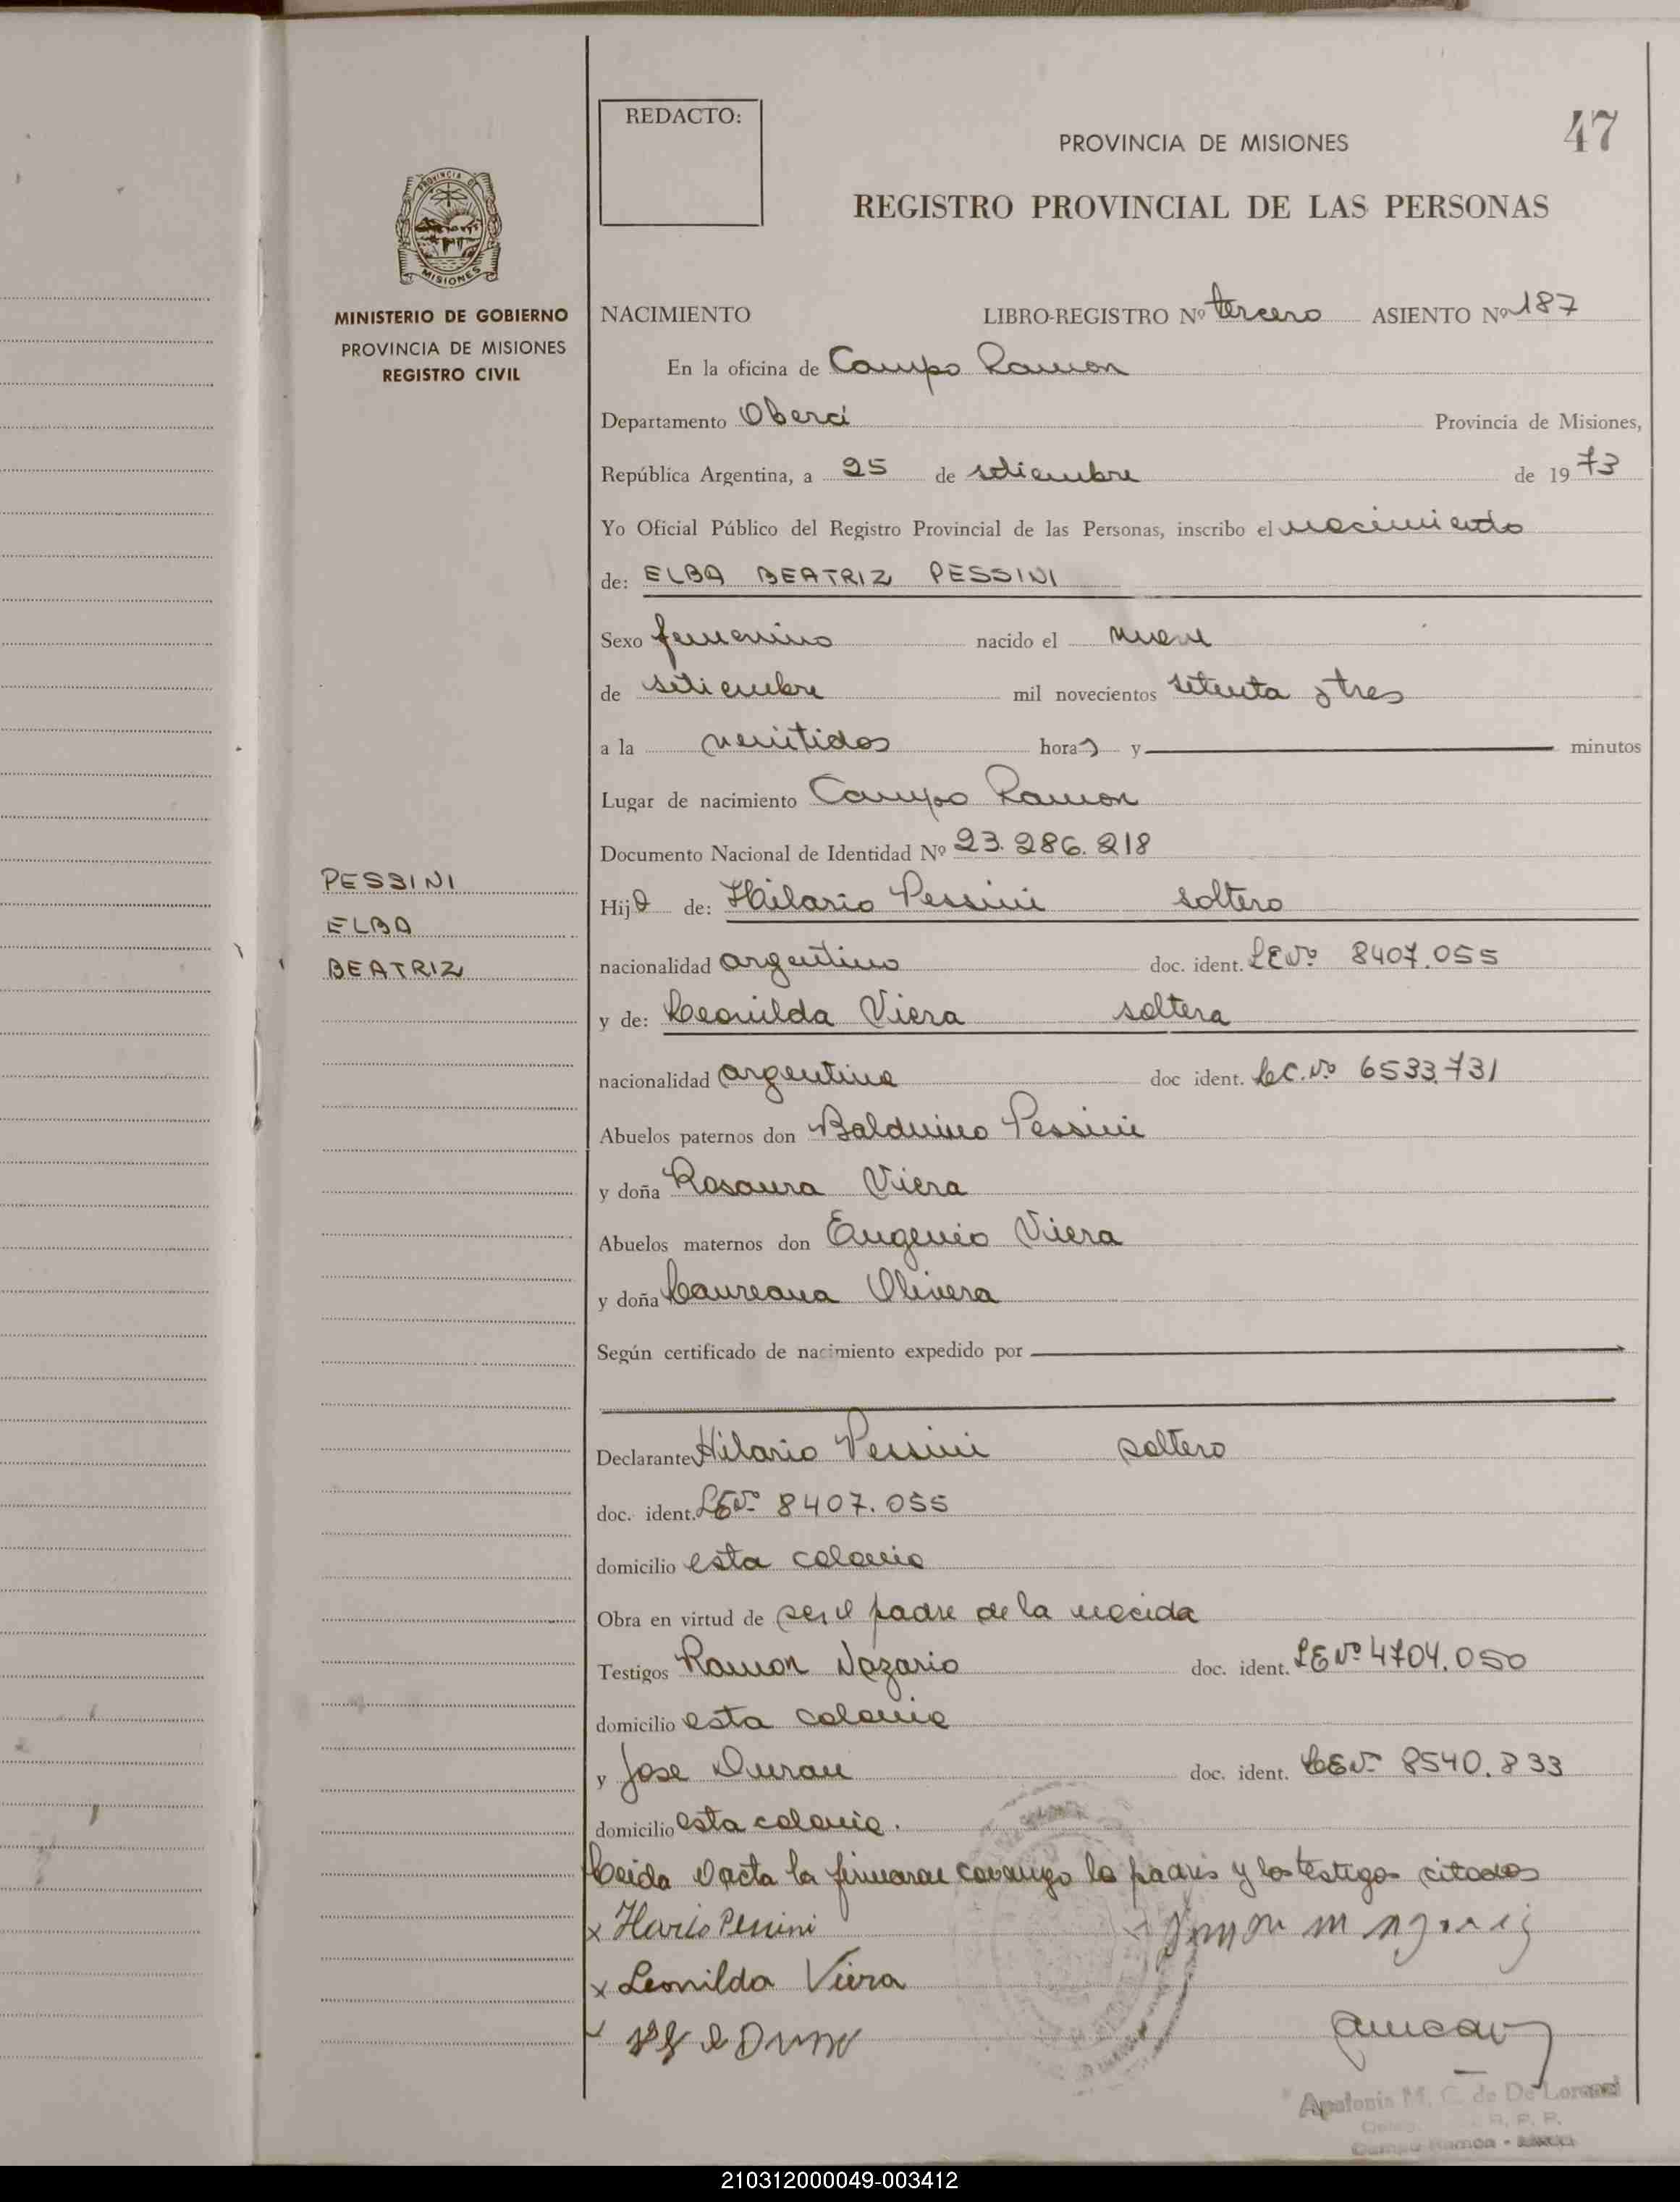 REDACTO:
47
PROVINCIA DE MISIONES
REGISTRO PROVINCIAL DE LAS PERSONAS
PROVINCIA DE
MISIONES
MINISTERIO DE GOBIERNO
PROVINCIA DE MISIONES
REGISTRO CIVIL
NACIMIENTO LIBRO-REGISTRO Nº tercero ASIENTO Nº 187
En la oficina de Campo Ramon
Departamento Oberá Provincia de Misiones,
República Argentina, a 25 de setiembre de 1973
Yo Oficial Público del Registro Provincial de las Personas, inscribo el nacimiento
de: ELBA BEATRIZ PESSINI
Sexo femenino nacido el nueve
de setiembre mil novecientos setenta y tres
a la veintidos horas y minutos
Lugar de nacimiento Campo Ramon
Documento Nacional de Identidad Nº 23.286.218
PESSINI
ELBA
BEATRIZ
Hija de: Hilario Pessini soltero
nacionalidad argentino doc. ident. LE Nº 8407.055
y de: Leonilda Viera soltera
nacionalidad argentina doc ident. LC. Nº 6533.731
Abuelos paternos don Balduino Pessini
y doña Rosaura Viera
Abuelos maternos don Eugenio Viera
y doña Laureana Olivera
Según certificado de nacimiento expedido por
Declarante Hilario Pessini soltero
doc. ident. LE Nº 8407.055
domicilio esta colonia
Obra en virtud de ser el padre de la nacida
Testigos Ramon Nazario doc. ident. LE Nº 4704.050
domicilio esta colonia
y Jose Duran doc. ident. LE Nº 8540.833
domicilio esta colonia.
Leida el acta la firmaran conmigo los padres y los testigos citados
x Ilario Pessini
x Leonilda Viera
Apolonia M. C. de De
R. P. P.
Campo Ramon -
210312000049-003412